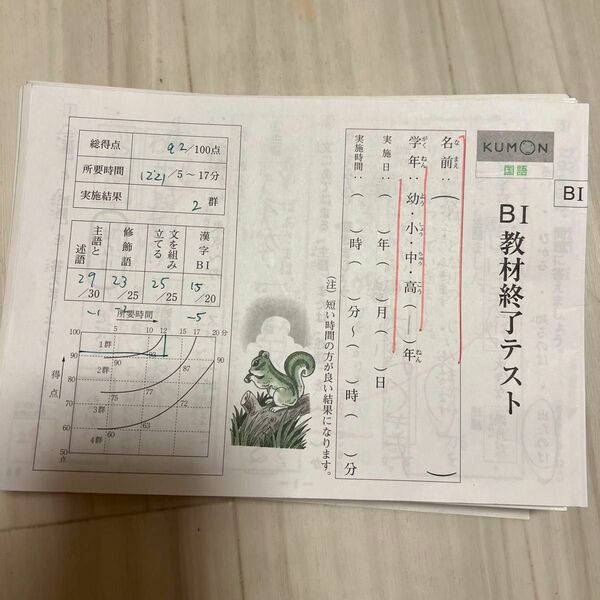 KUMON
国語
BI
BI 教材終了テスト
名前：（　）
なまえ
学年：幼・小・中・高（　）年
がくねん　よう　しょう　ちゅう　こう　ねん
実施日：（　）年（　）月（　）日
実施時間：（　）時（　）分～（　）時（　）分
（注）短い時間の方が良い結果になります。
総得点 92/100点
所要時間 12'21/5～17分
実施結果 2群
漢字BI 15/20
文を組み立てる 25/25
修飾語 23/25
主語と述語 29/30
-1 -2 -5
所要時間
5 10 12 15 17 20分
得点
100
90
75
60
50点
1群
2群
3群
4群
90 93
75 78
60 63
90